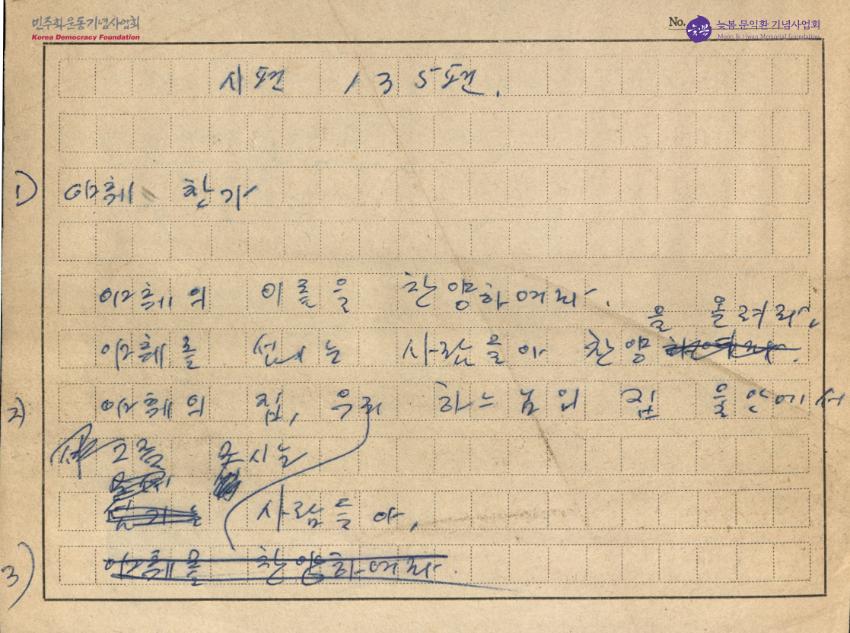 민주화운동기념사업회
Korea Democracy Foundation
No.
늦봄
늦봄 문익환 기념사업회
Moon Ik Hwan Memorial Foundation
시편 135편.
1) 야훼 찬가
야훼의 이름을 찬양하여라.
을 올려라.
야훼를 섬기는 사람들아 찬양하여라.
2) 야훼의 집, 우리 하느님의 집 울안에서
그를 모시는
사람들아,
3) 야훼를 찬양하여라.